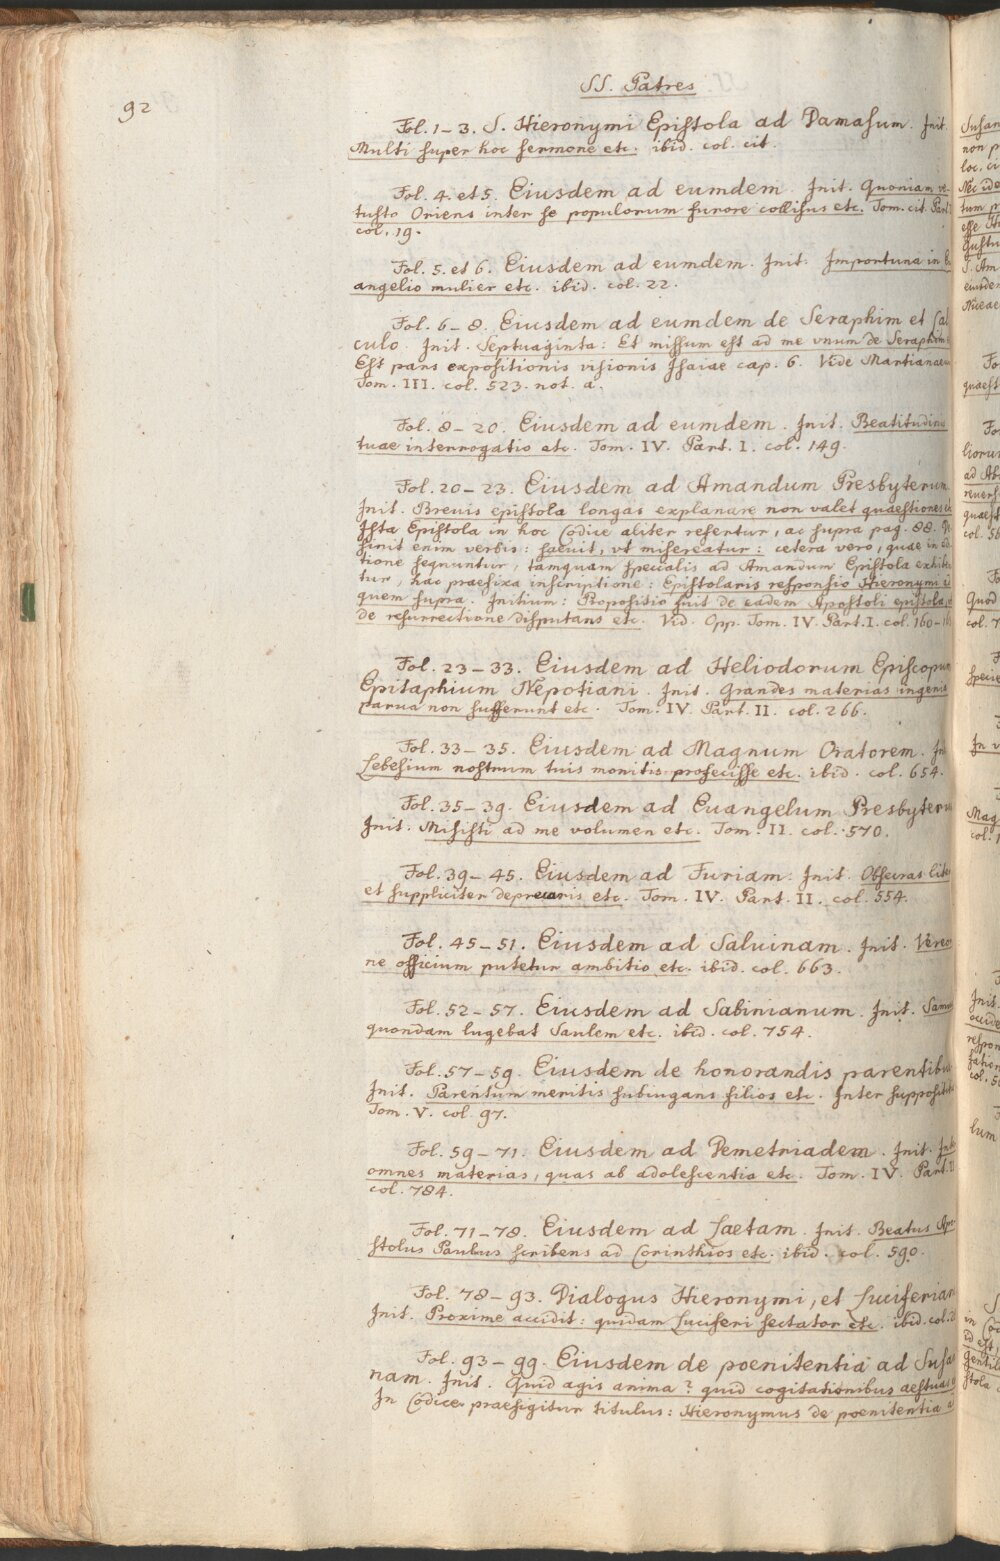 92
SS. Patres
Fol. 1–3. S. Hieronymi Epistola ad Damasum. Init.
Multi super hoc sermone etc. ibid. col. cit.
Fol. 4. et 5. Eiusdem ad eumdem. Init. Quoniam ve-
tusto Oriens inter se populorum furore collisus etc. Tom. cit. Part.
col. 19.
Fol. 5. et 6. Eiusdem ad eumdem. Init. Importuna in
angelio mulier etc. ibid. col. 22.
Fol. 6–8. Eiusdem ad eumdem de Seraphim et Cal
culo. Init. Septuaginta: Et missum est ad me vnum de Seraphim:
Est pars expositionis visionis Isaiae cap. 6. Vide Martianaeum
Tom. III. col. 523. not. a.
Fol. 8–20. Eiusdem ad eumdem. Init. Beatitudinis
tuae interrogatio etc. Tom. IV. Part. I. col. 149.
Fol. 20–23. Eiusdem ad Amandum Presbyterum.
Init. Breuis epistola longas explanare non valet quaestiones
Ista Epistola in hoc Codice aliter refertur, ac supra pag. 88.
finit enim verbis: saeuit, vt misereatur: cetera vero, quae in
tione sequuntur, tamquam specialis ad Amandum Epistola exhibe
tur, hac praefixa inscriptione: Epistolaris responsio Hieronymi
quem supra. Initium: Propositio fuit de eadem Apostoli epistola,
de resurrectione disputans etc. Vid. Opp. Tom. IV. Part. I. col. 160–
Fol. 23–33. Eiusdem ad Heliodorum Episcopum
Epitaphium Nepotiani. Init. Grandes materias ingenia
parua non sufferunt etc. Tom. IV. Part. II. col. 266.
Fol. 33–35. Eiusdem ad Magnum Oratorem.
Sebesium nostrum tuis monitis profecisse etc. ibid. col. 654.
Fol. 35–39. Eiusdem ad Euangelum Presbyterum
Init. Misisti ad me volumen etc. Tom. II. col. 570.
Fol. 39–45. Eiusdem ad Furiam. Init. Obsecras lite
et suppliciter deprecaris etc. Tom. IV. Part. II. col. 554.
Fol. 45–51. Eiusdem ad Saluinam. Init. Vereor
ne officium putetur ambitio etc. ibid. col. 663.
Fol. 52–57. Eiusdem ad Sabinianum. Init. Samu
quondam lugebat Saulem etc. ibid. col. 754.
Fol. 57–59. Eiusdem de honorandis parentibus
Init. Parentum meritis subiugans filios etc. Inter supposita
Tom. V. col. 97.
Fol. 59–71. Eiusdem ad Demetriadem. Init. Inter
omnes materias, quas ab adolescentia etc. Tom. IV. Part.
col. 784.
Fol. 71–78. Eiusdem ad Laetam. Init. Beatus Apo-
stolus Paulus scribens ad Corinthios etc. ibid. col. 590.
Fol. 78–93. Dialogus Hieronymi, et Luciferiani
Init. Proxime accidit: quidam Luciferi sectator etc. ibid. col.
Fol. 93–99. Eiusdem de poenitentia ad Susan
nam. Init. Quid agis anima? quid cogitationibus aestuas
In Codice praefigitur titulus: Hieronymus de poenitentia